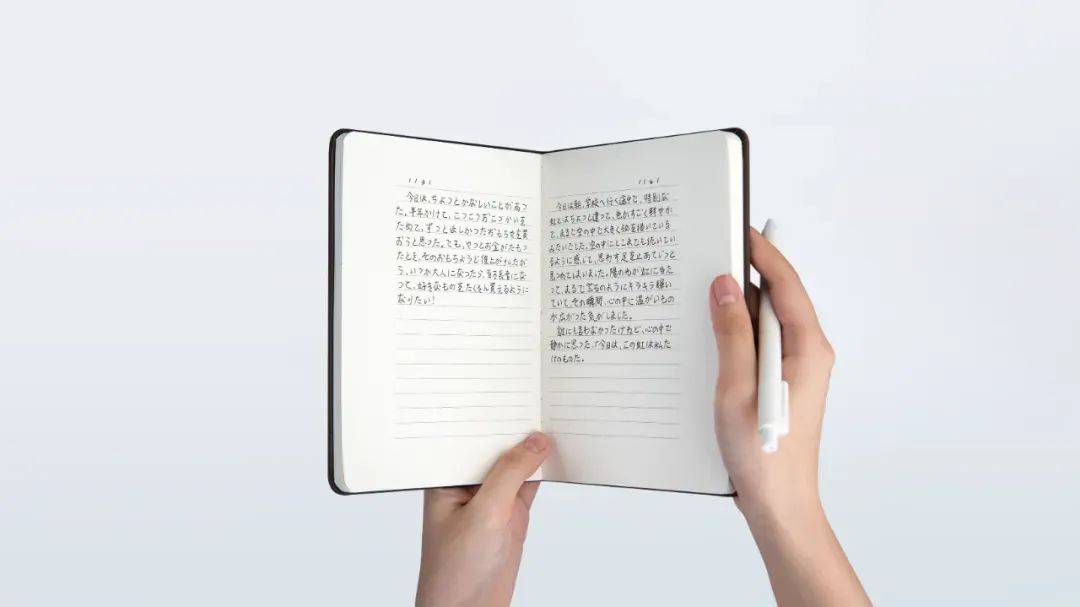 今日は、ちょっとかなしいことがあっ
た。半年かけて、こつこつおこづかいをた
ためて、ずっとほしかったおもちゃを買
おうと思った。でも、やっとお金がたまっ
たとき、そのおもちゃ
いつか大人になったら、
って、好きなものをたくさん買えるように
なりたい!
今日は朝、学校へ行く途中で、特別な
虹とはちょっと違って、色がすごく鮮やか
で、まるで空の中で大きく弧を描いている
みたいでした。空の中にどこまでも続いてい
るように感じて、思わず足を止めてじっと
見つめてしまいました。陽の光が虹に当た
って、まるで宝石のようにキラキラ輝い
ていて、その瞬間、心の中に温かいもの
が広がった気がしました。
誰にも言わなかったけれど、心の中で
静かに思った。「今日は、この虹は私だ
けのものだ。